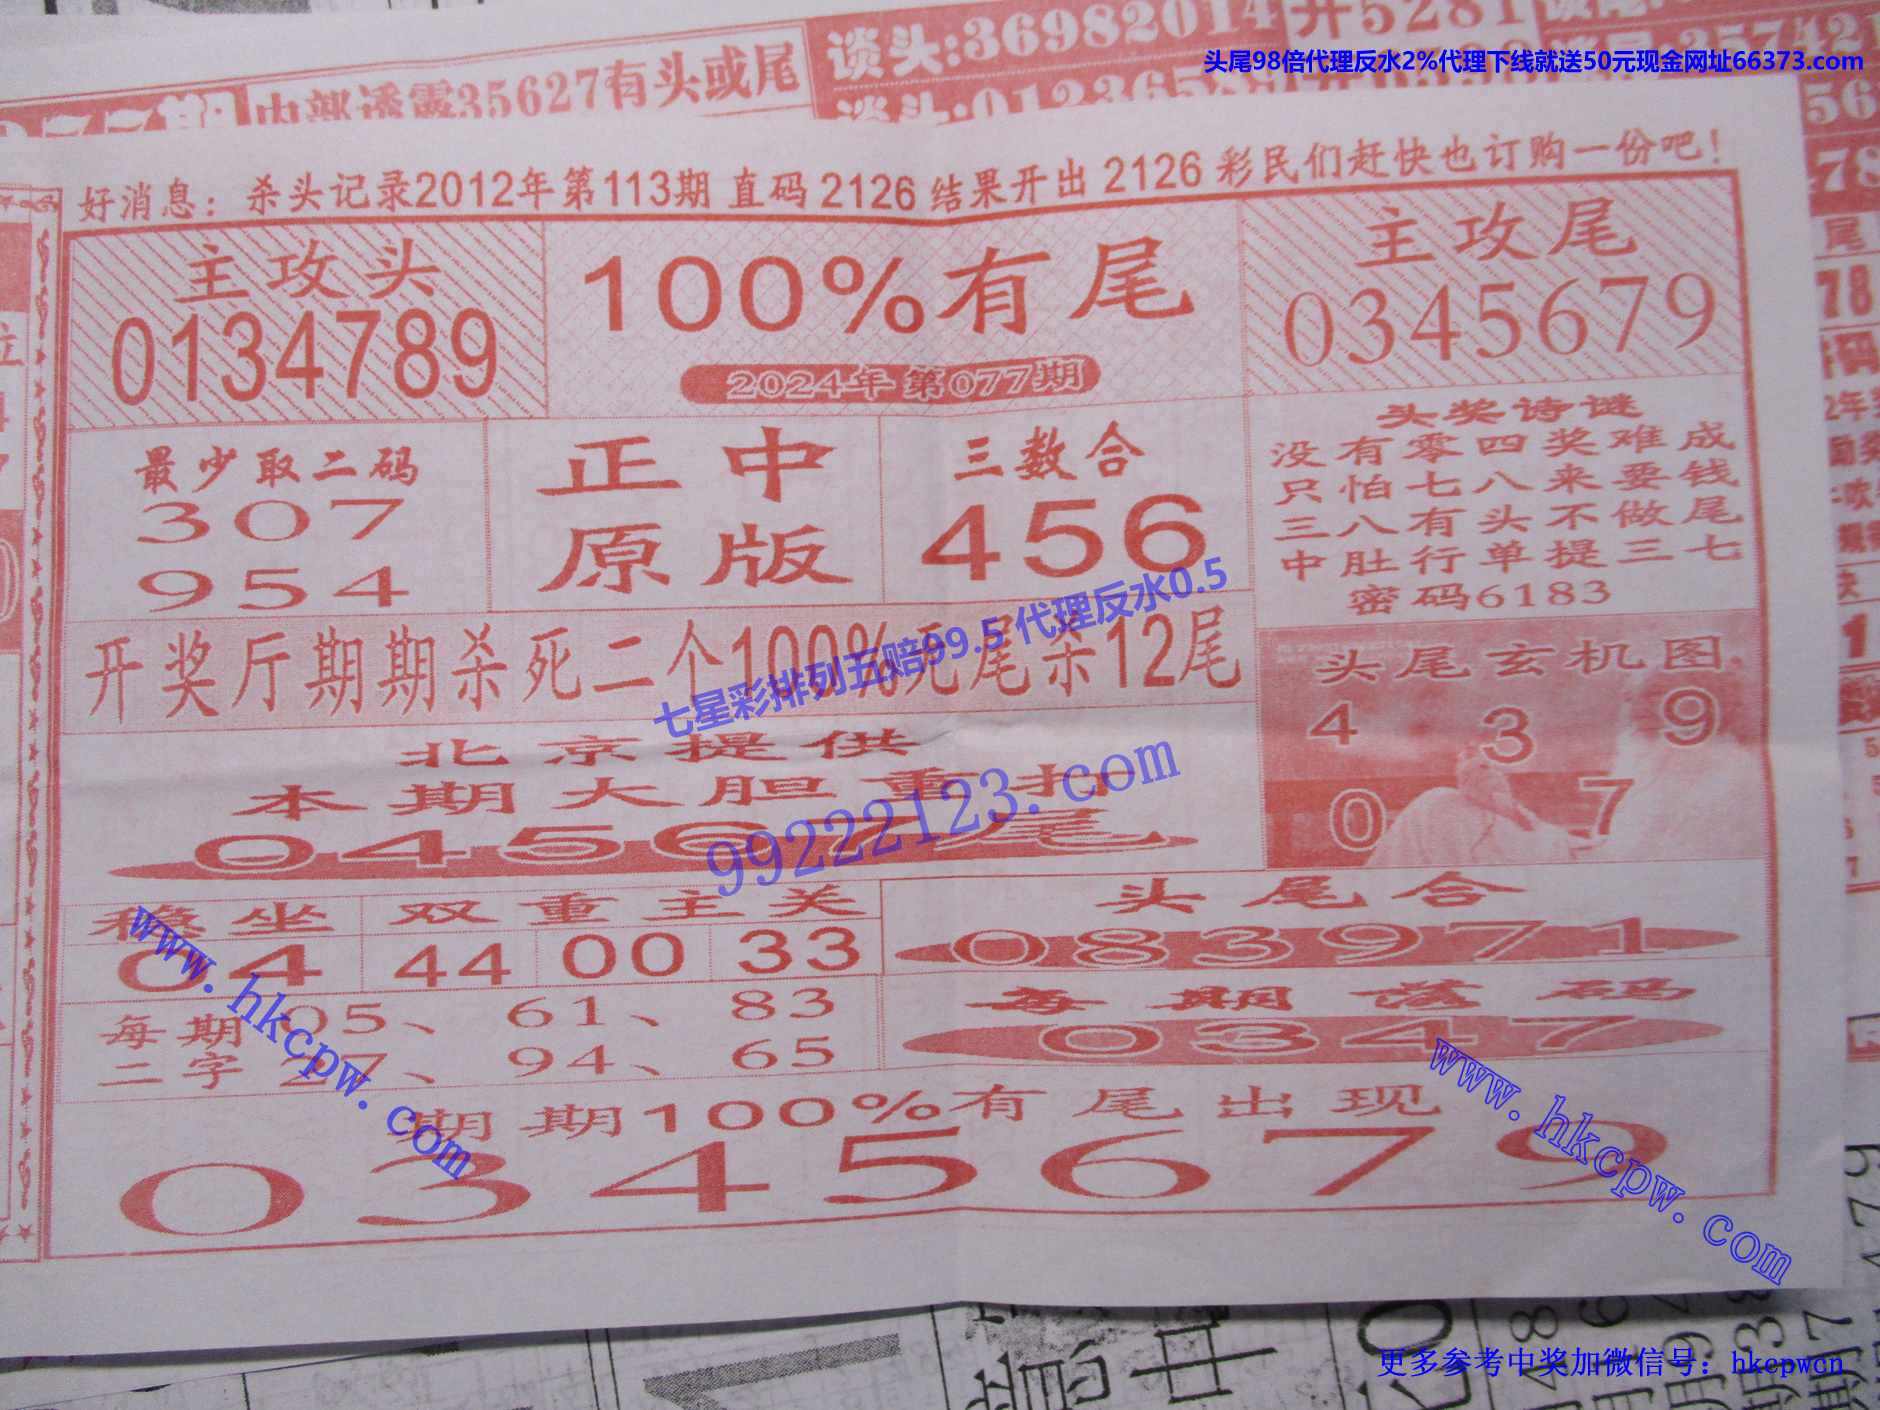 谈头:36982014
开5281
头尾98倍代理反水2%代理下线就送50元现金网址66373.com
内部透露35627有头或尾
好消息：杀头记录2012年第113期 直码 2126 结果开出 2126 彩民们赶快也订购一份吧！
主攻头
0134789
100%有尾
2024年第077期
主攻尾
0345679
最少取二码
307
954
正中
原版
三数合
456
头奖诗谜
没有零四奖难成
只怕七八来要钱
三八有头不做尾
中肚行单提三七
密码6183
开奖厅期期杀死二个100%死尾杀12尾
七星彩排列五赔99.5 代理反水0.5
头尾玄机图
4 3 9
0 7
北京提供
本期大胆重扣
99222123.com
稳坐
04
双重主关
44 00 33
头尾合
083971
每期
二字
05、61、83
27、94、65
每期落码
0347
www.hkcpw.com
www.hkcpw.com
期期100%有尾出现
0345679
更多参考中奖加微信号：hkcpwcn